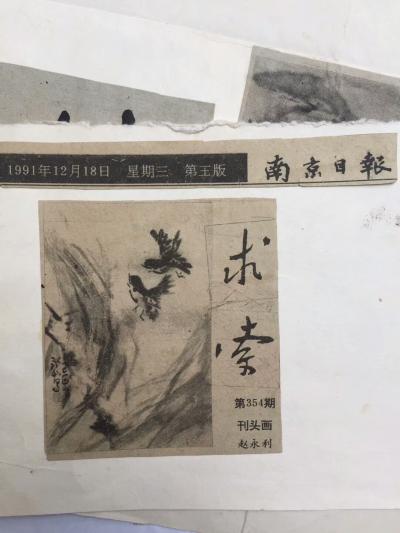 1991年12月18日 星期三 第五版
南京日報
求索
第354期
刊头画
赵永利